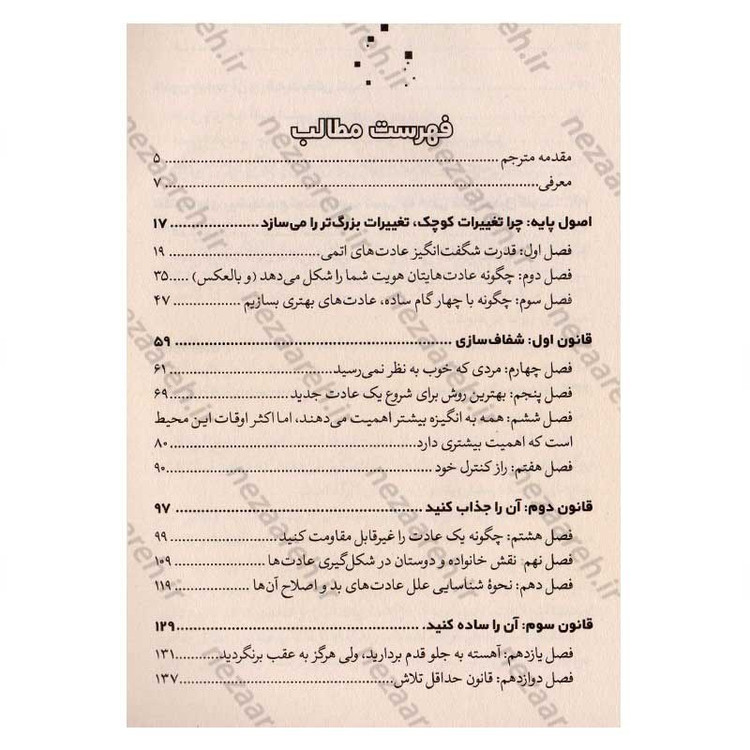 فهرست مطالب
مقدمه مترجم ................................................ ۵
معرفی ................................................ ۷
اصول پایه: چرا تغییرات کوچک، تغییرات بزرگ‌تر را می‌سازد .................... ۱۷
فصل اول: قدرت شگفت‌انگیز عادت‌های اتمی .............................. ۱۹
فصل دوم: چگونه عادت‌هایتان هویت شما را شکل می‌دهد (و بالعکس) ..... ۳۵
فصل سوم: چگونه با چهار گام ساده، عادت‌های بهتری بسازیم .............. ۴۷
قانون اول: شفاف‌سازی ........................................ ۵۹
فصل چهارم: مردی که خوب به نظر نمی‌رسید .......................... ۶۱
فصل پنجم: بهترین روش برای شروع یک عادت جدید .................... ۶۹
فصل ششم: همه به انگیزه بیشتر اهمیت می‌دهند، اما اکثر اوقات این محیط
است که اهمیت بیشتری دارد ........................................ ۸۰
فصل هفتم: راز کنترل خود ........................................ ۹۰
قانون دوم: آن را جذاب کنید ........................................ ۹۷
فصل هشتم: چگونه یک عادت را غیرقابل مقاومت کنید .................. ۹۹
فصل نهم: نقش خانواده و دوستان در شکل‌گیری عادت‌ها ................ ۱۰۹
فصل دهم: نحوهٔ شناسایی علل عادت‌های بد و اصلاح آن‌ها .............. ۱۱۹
قانون سوم: آن را ساده کنید. ........................................ ۱۲۹
فصل یازدهم: آهسته به جلو قدم بردارید، ولی هرگز به عقب برنگردید ........... ۱۳۱
فصل دوازدهم: قانون حداقل تلاش .............................. ۱۳۷
nezaareh.ir